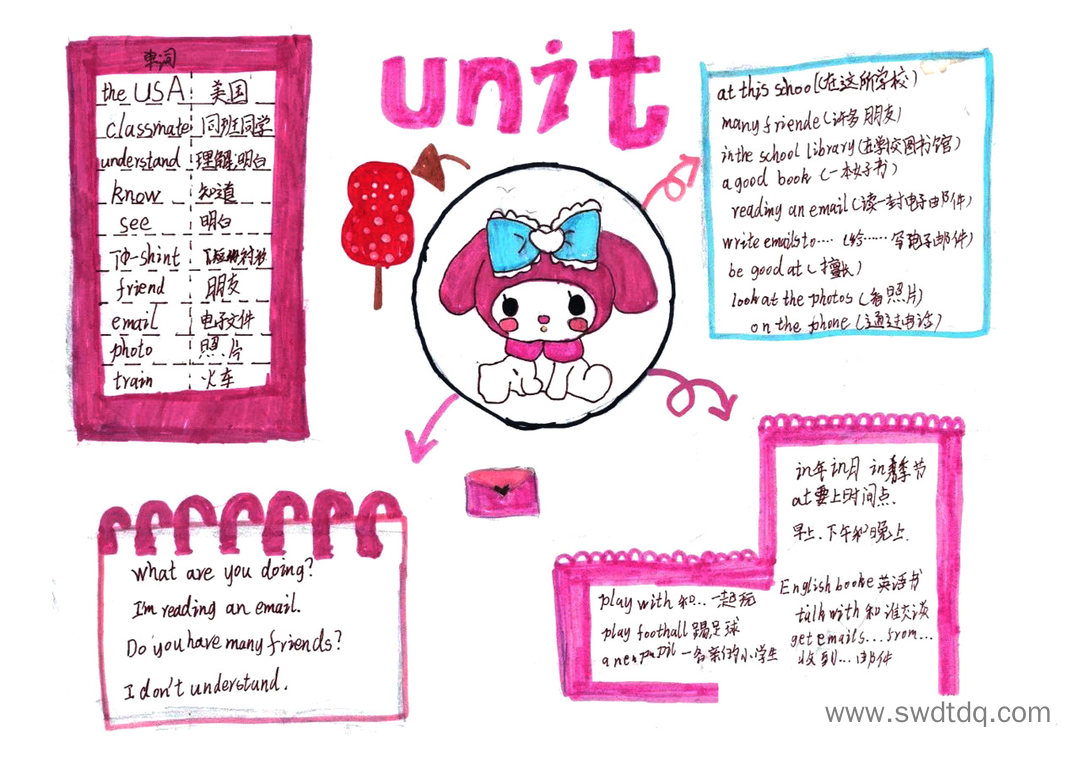 unit
单词
the USA 美国
classmate 同班同学
understand 理解;明白
know 知道
see 明白
T-shint T恤衫;衬衫
friend 朋友
email 电子文件
photo 照片
train 火车
at this school(在这所学校)
many friende(许多朋友)
in the school library(在学校图书馆)
a good book (一本好书)
reading an email(读一封电子邮件)
write emails to····(给······写电子邮件)
be good at (擅长)
look at the photos (看照片)
on the phone (通过电话)
What are you doing?
I'm reading an email.
Do you have many friends?
I don't understand.
in年in月 in季节
at要上时间点
早上.下午和晚上.
play with 和...一起玩
play foothall 踢足球
a new pupil 一名新的小学生
English booke 英语书
talk with 和谁交谈
get emails...from...
收到...邮件
www.swdtdq.com